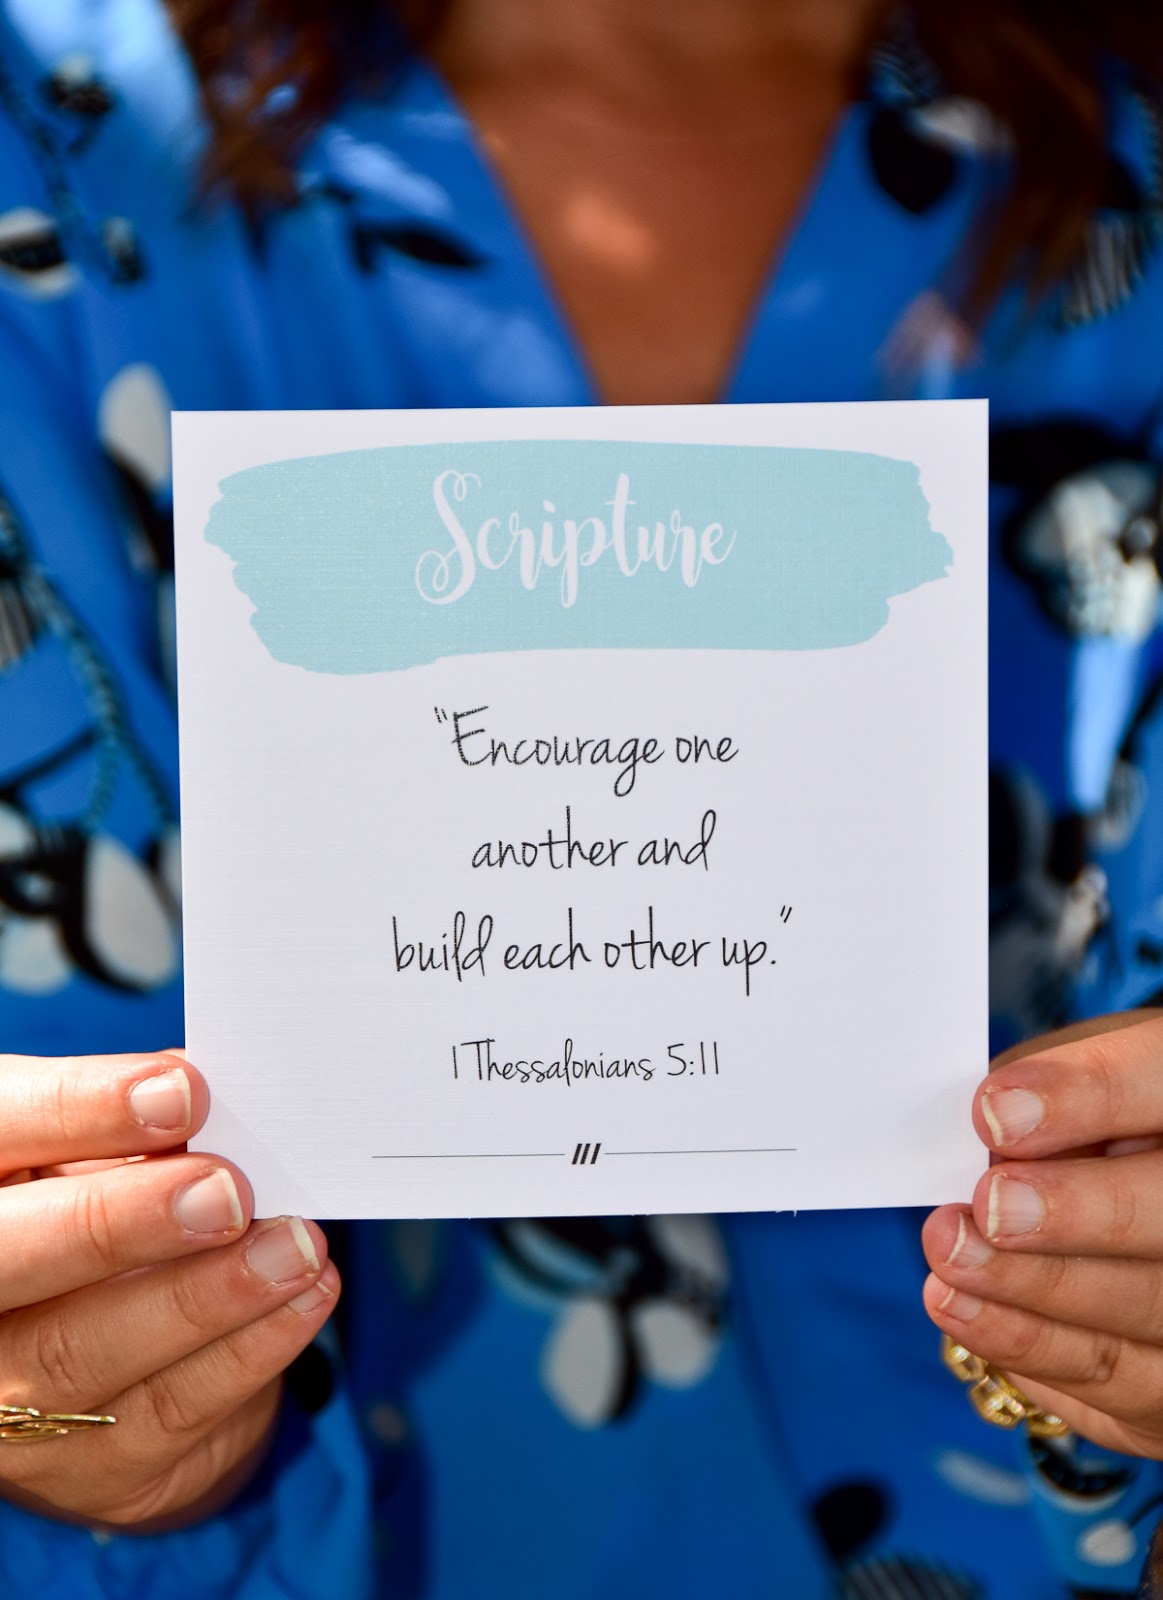 Scripture
"Encourage one
another and
build each other up."
1 Thessalonians 5:11